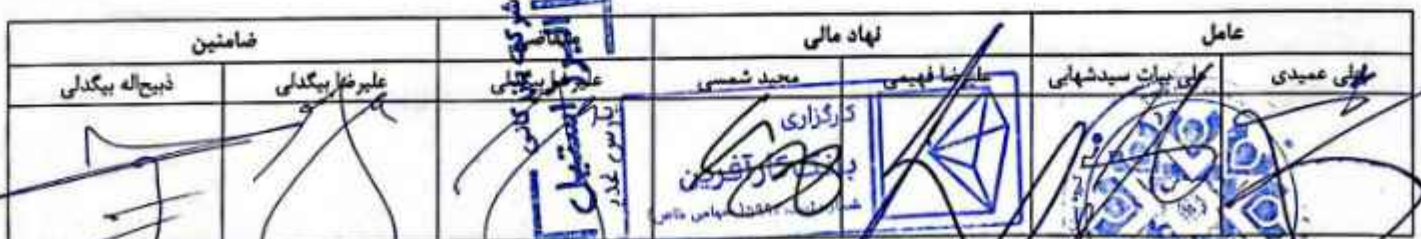 عامل نهاد مالی متقاضی ضامنین
علی عمیدی علی بیات سیدشهابی علیرضا فهیمی مجید شمسی علیرضا بیگدلی علیرضا بیگدلی ذبیح‌اله بیگدلی
کارگزاری
بانک کارآفرین
شرکت
البرز استیل